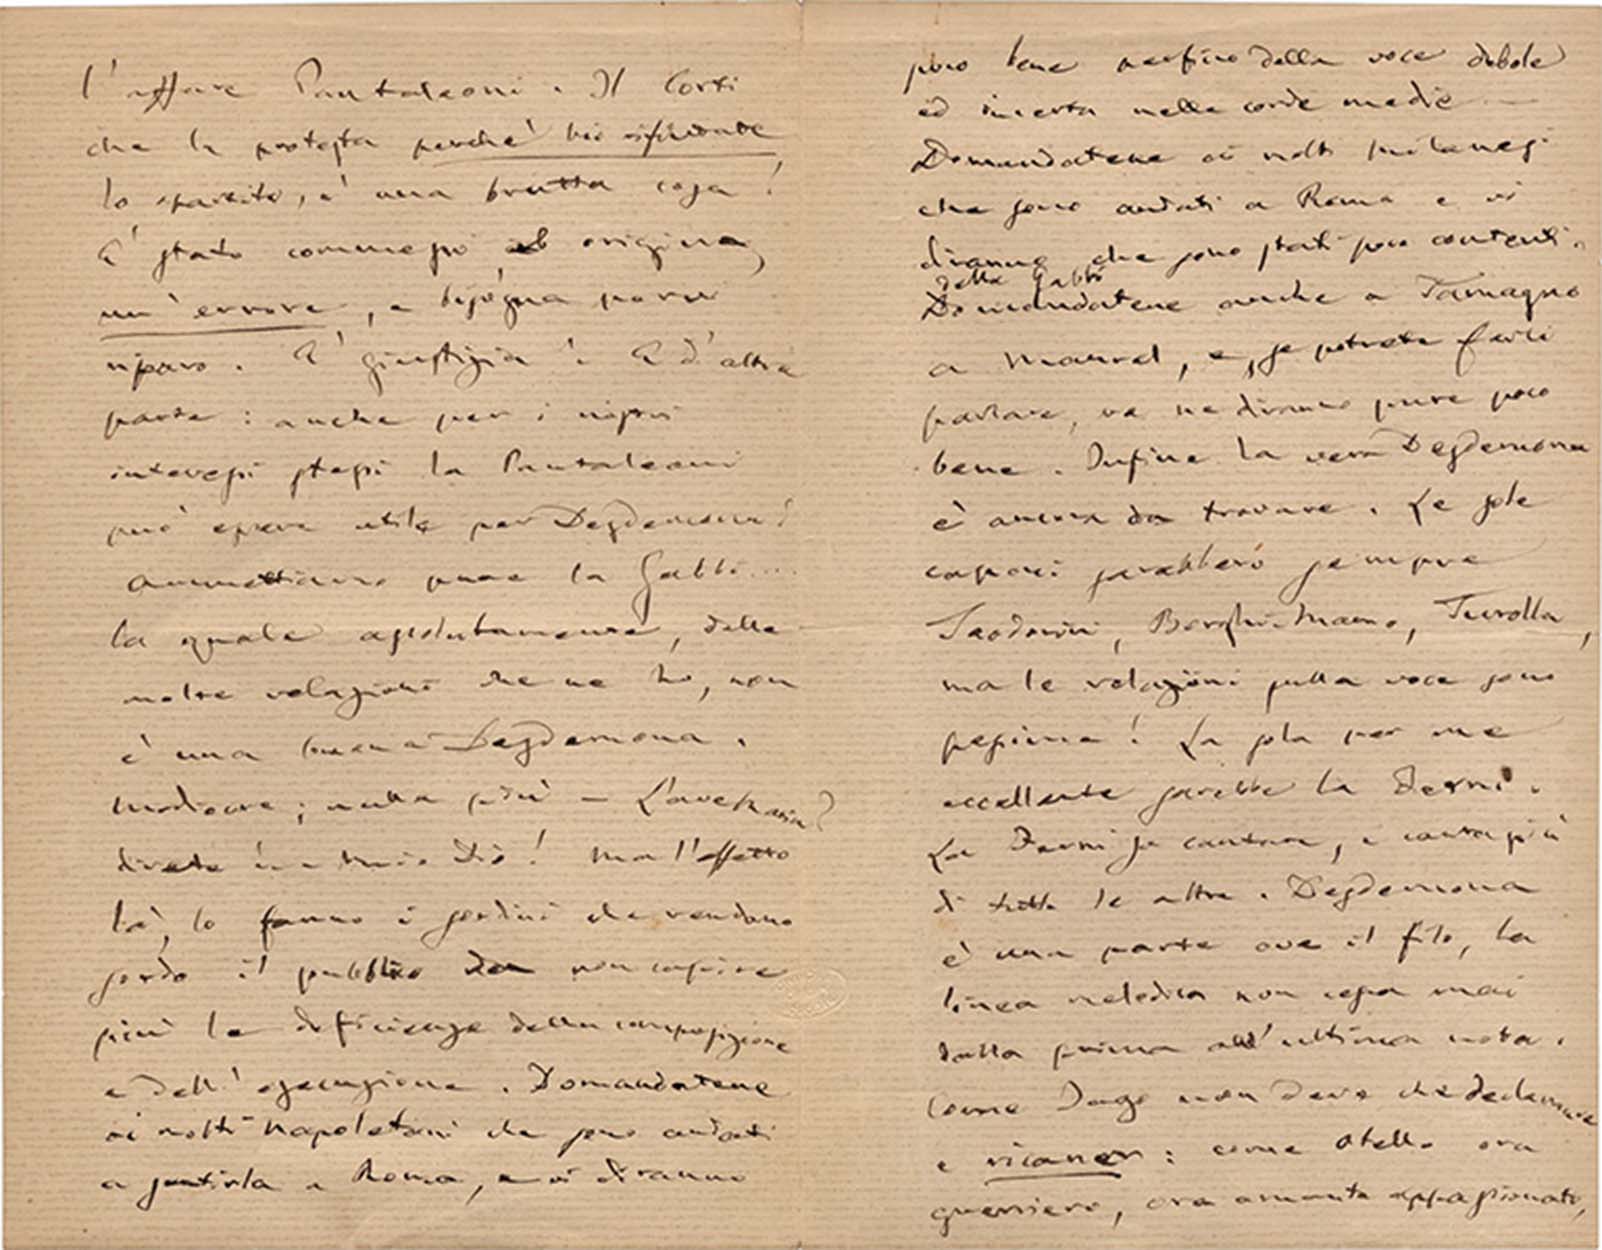 l'affare Pantaleoni. Il Corti
che la protesta perché hai rifiutato
lo spartito, è una brutta cosa!
E' stato commesso in origine,
un'errore, e bisogna porvi
riparo. E' giustizia! E d'altra
parte: anche per i nostri
interessi stessi la Pantaleoni
può essere utile per Desdemona!
Ammettiamo pure la Gabbi....
la quale assolutamente, dalle
molte relazioni che ne ho, non
è una buona Desdemona.
mediocre; nulla più — L'ave Maria?
direte Mio Dio! Ma l'effetto
là, lo fanno i sordini che rendono
sordo il pubblico da non capire
più le deficienze della composizione
e dell'esecuzione. Domandatene
ai molti Napoletani che sono andati
a sentirla a Roma, e vi diranno
poco bene perfino della voce debole
ed incerta nelle corde medie —
Domandatene ai molti Milanesi
che sono andati a Roma e vi
diranno che sono stati poco contenti.
della Gabbi
Domandatene anche a Tamagno
a Maurel, e, se potrete farli
parlare, ve ne diranno pure poco
bene. Infine la vera Desdemona
è ancora da trovare. Le sole
capaci sarebbero sempre
Teodorini, Borghi-Mamo, Turolla,
ma le relazioni sulla voce sono
pessime! La sola per me
eccellente sarebbe la Ferni.
La Ferni sa cantare, e canta più
di tutte le altre. Desdemona
è una parte ove il filo, la
linea melodica non cessa mai
dalla prima all'ultima nota.
Come Jago non deve che declamare
e ricaner: come Otello ora
guerriero, ora amante appassionato,